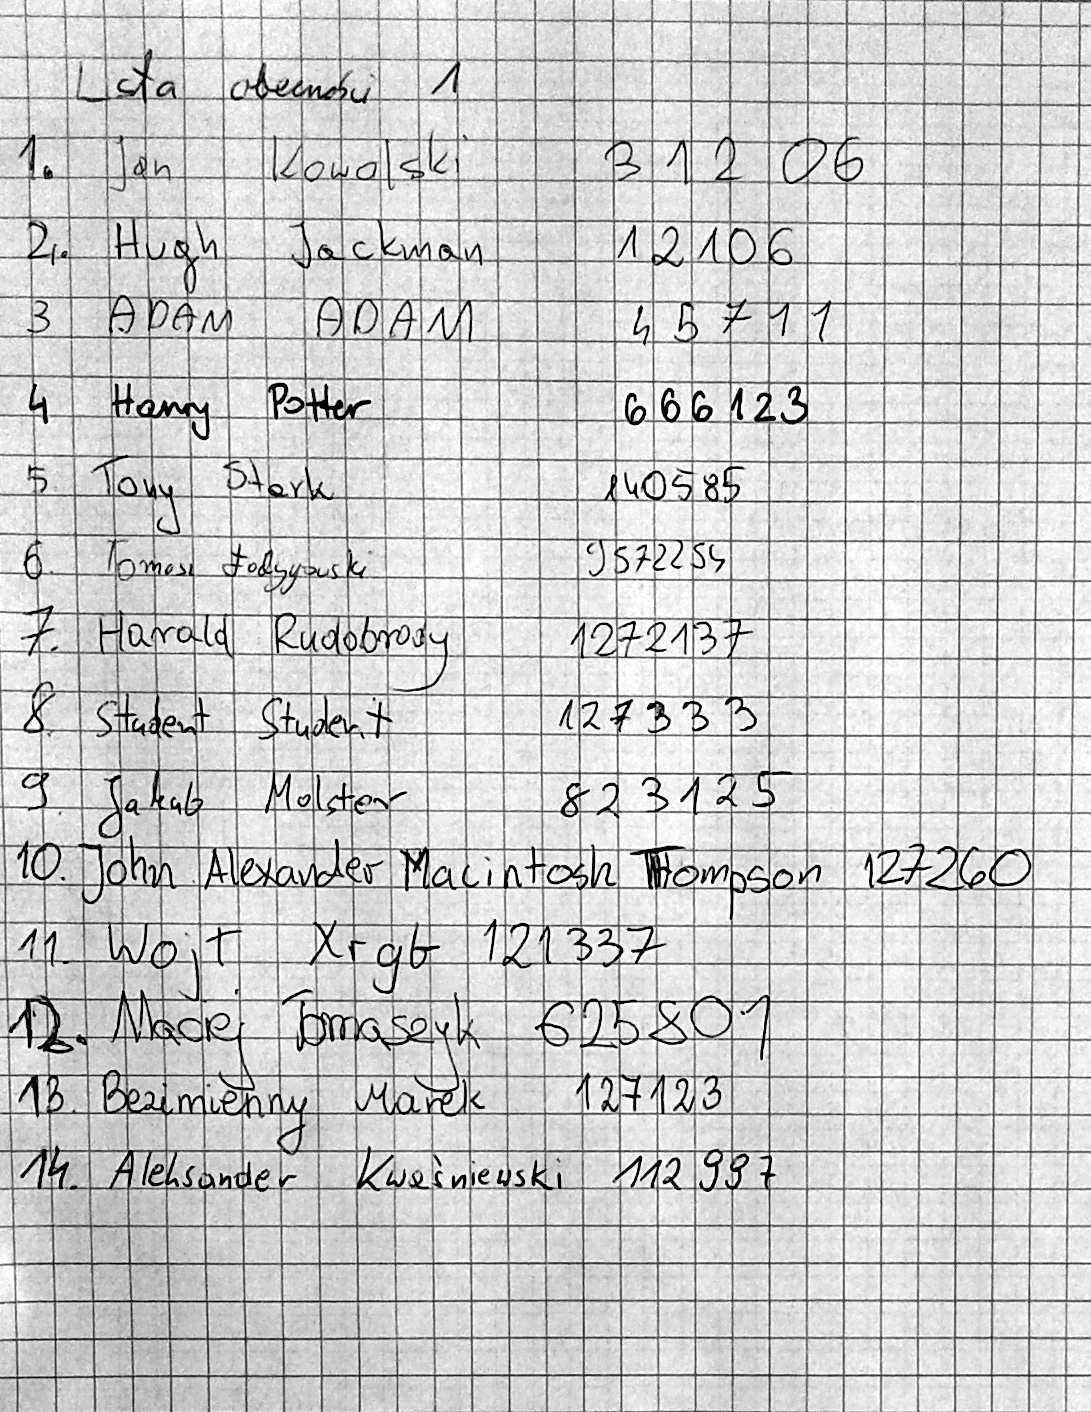 Lsta obecności 1
1. Jan Kowalski 31206
2. Hugh Jackman 12106
3 ADAM ADAM 45711
4 Harry Potter 666123
5 Tony Stark 140585
6. Tomasz 9572254
7. Harald Rudobrody 1272137
8. Student Student 127333
9. Jakub Molster 823125
10. John Alexander Macintosh Thompson 127260
11. Wojt Xrgb 121337
12. Maciej Tomaszyk 625801
13. Bezimienny Marek 127123
14. Aleksander Kwaśniewski 112997